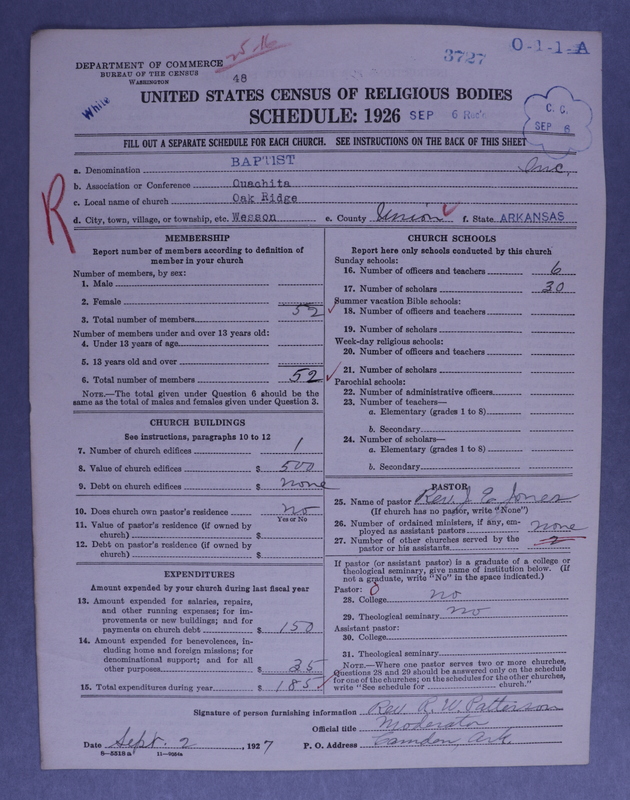 DEPARTMENT OF COMMERCE
BUREAU OF THE CENSUS
WASHINGTON
25.16
3727
O-1-1-A
48
White
UNITED STATES CENSUS OF RELIGIOUS BODIES
SCHEDULE: 1926
SEP 6 Rec'd
C. C.
SEP 6
FILL OUT A SEPARATE SCHEDULE FOR EACH CHURCH. SEE INSTRUCTIONS ON THE BACK OF THIS SHEET
R
a. Denomination BAPTIST Inc.
b. Association or Conference Ouachita
c. Local name of church Oak Ridge
d. City, town, village, or township, etc. Wesson e. County Union f. State ARKANSAS
MEMBERSHIP
Report number of members according to definition of
member in your church
Number of members, by sex:
1. Male
2. Female
3. Total number of members 52
Number of members under and over 13 years old:
4. Under 13 years of age
5. 13 years old and over
6. Total number of members 52
NOTE.—The total given under Question 6 should be the
same as the total of males and females given under Question 3.
CHURCH BUILDINGS
See instructions, paragraphs 10 to 12
7. Number of church edifices 1
8. Value of church edifices $ 500
9. Debt on church edifices $ none
10. Does church own pastor's residence no
Yes or No
11. Value of pastor's residence (if owned by
church) $
12. Debt on pastor's residence (if owned by
church) $
EXPENDITURES
Amount expended by your church during last fiscal year
13. Amount expended for salaries, repairs,
and other running expenses; for im-
provements or new buildings; and for
payments on church debt $ 150
14. Amount expended for benevolences, in-
cluding home and foreign missions; for
denominational support; and for all
other purposes $ 35
15. Total expenditures during year $ 185
CHURCH SCHOOLS
Report here only schools conducted by this church
Sunday schools:
16. Number of officers and teachers 6
17. Number of scholars 30
Summer vacation Bible schools:
18. Number of officers and teachers
19. Number of scholars
Week-day religious schools:
20. Number of officers and teachers
21. Number of scholars
Parochial schools:
22. Number of administrative officers
23. Number of teachers—
a. Elementary (grades 1 to 8)
b. Secondary
24. Number of scholars—
a. Elementary (grades 1 to 8)
b. Secondary
PASTOR
25. Name of pastor Rev. J. E. Jones
(If church has no pastor, write "None")
26. Number of ordained ministers, if any, em-
ployed as assistant pastors none
27. Number of other churches served by the
pastor or his assistants 2
If pastor (or assistant pastor) is a graduate of a college or
theological seminary, give name of institution below. (If
not a graduate, write "No" in the space indicated.)
Pastor: 0
28. College no
29. Theological seminary no
Assistant pastor:
30. College
31. Theological seminary
NOTE.—Where one pastor serves two or more churches,
Questions 28 and 29 should be answered only on the schedule
for one of the churches; on the schedules for the other churches,
write "See schedule for church."
Signature of person furnishing information Rev. R. W. Patterson
Official title Moderator
Date Sept. 2, 1927 P. O. Address Camden, Ark.
8—5318 a